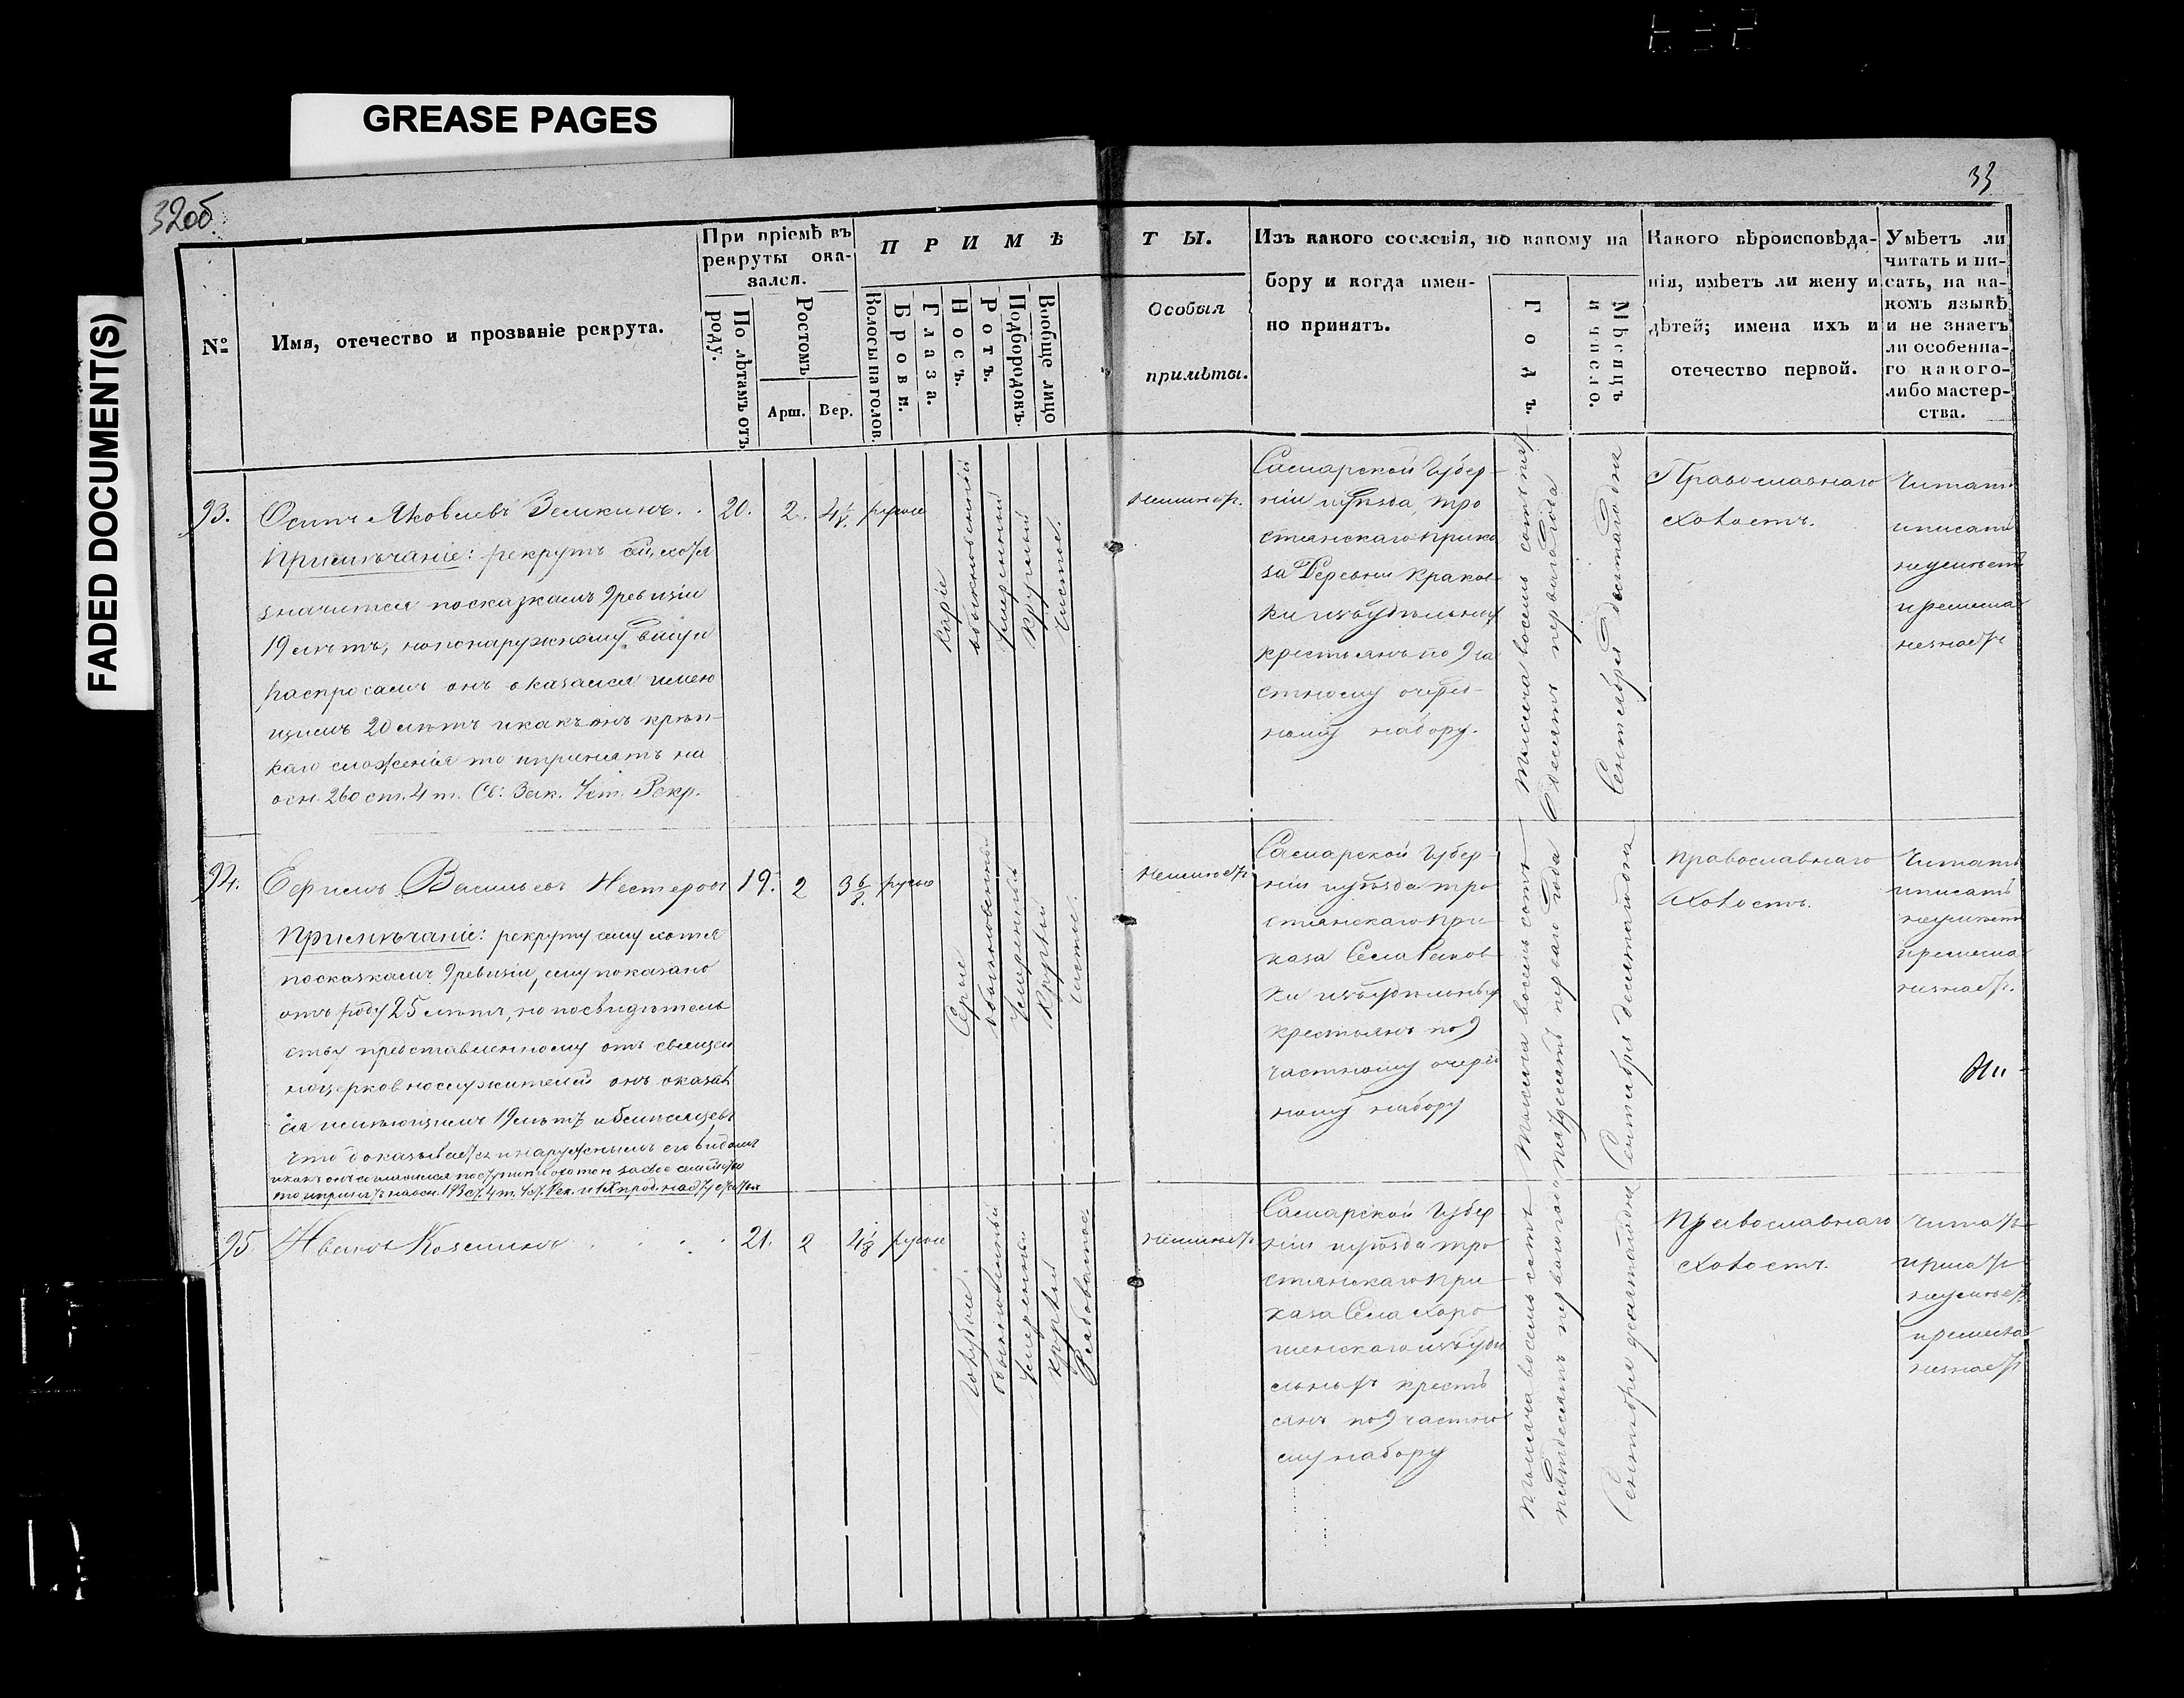 GREASE PAGES
FADED DOCUMENT(S)
32об.
33
№
Имя, отечество и прозваніе рекрута.
При пріемѣ въ
рекруты ока-
зался.
По лѣтамъ отъ
роду.
Ростомъ
Арш.
Вер.
П Р И М Ѣ
Волосы на голов.
Брови.
Глаза.
Носъ.
Ротъ.
Подбородокъ
Вообще лицо
Т Ы.
Особыя
примѣты.
Изъ какого сословія, по какому на
бору и когда имен-
но принятъ.
Годъ.
Мѣсяцъ
и число.
Какого вѣроисповѣда-
нія, имѣетъ ли жену и
дѣтей; имена ихъ и
отечество первой.
Умѣетъ ли
читать и пи-
сать, на ка-
комъ языкѣ
и не знаетъ
ли особенна-
го какого-
либо мастер-
ства.
93.
Осипъ Яковлевъ Земкинъ.
Примѣчаніе: рекрутъ сей, хотя
значится по сказкамъ 9 ревизіи
19 лѣтъ, но по наружному виду и
распросамъ онъ оказался имею
щимъ 20 лѣтъ и какъ онъ крѣп-
каго сложенія то и принятъ на
осн. 260 ст. 4 т. Св: Зак. Уст. Рекр.
20.
2.
русые
карiе
обыкновенный
умеренный
круглый
чистое.
неимеетъ.
Самарской Губер-
ніи и уѣзда, тро
стянскаго прика
за Деревни Краков
ки из удельныхъ
крестьянъ по 9 ча
стному очеред-
ному набору.
тысяча восемь сотъ пять
десятъ перваго Года
Сентября десятаго дня
Православнаго
холостъ.
Читать
и писать
неумѣетъ
и ремесла
незнаетъ
94.
Ефимъ Васильевъ Нестеровъ
Примѣчаніе: рекруту сему хотя
по сказкамъ 9 ревизіи, ему показано
отъ роду 25 лѣтъ, но по свидѣтель
ству представленному отъ священ
но церковнослужителей онъ оказал
ся имѣющимъ 19 лѣтъ и 6 мѣсяцевъ
что доказывается и наружнымъ его видомъ
19.
2
3 6/8.
русые
Серые
обыкновенный
умеренный
круглый
чистое.
неимеетъ
Самарской Губер-
ніи и уѣзда тро
стянскаго при-
каза Села
ки из удельныхъ
крестьянъ по 9
частному очеред
ному набору
тысяча восемь сотъ
пятдесятъ перваго Года
Сентября десятаго дня
Православнаго
Холостъ.
Читать
и писать
неумѣетъ
и ремесла
незнаетъ.
95.
Иванъ Козминъ
21.
2
4 1/8
русые
голубые
обыкновенный
умеренный
круглый
Рябоватое
неимѣетъ
Самарской Губер-
ніи и уѣзда тро
стянскаго при-
каза Села Хоро
шенскаго из уде
льныхъ кресть
янъ по 9 частно
му набору
тысяча восемь сотъ
пятдесятъ перваго
Сентября десятаго дня
Православнаго
холостъ.
Читать
и писать
неумѣетъ
и ремесла
незнаетъ